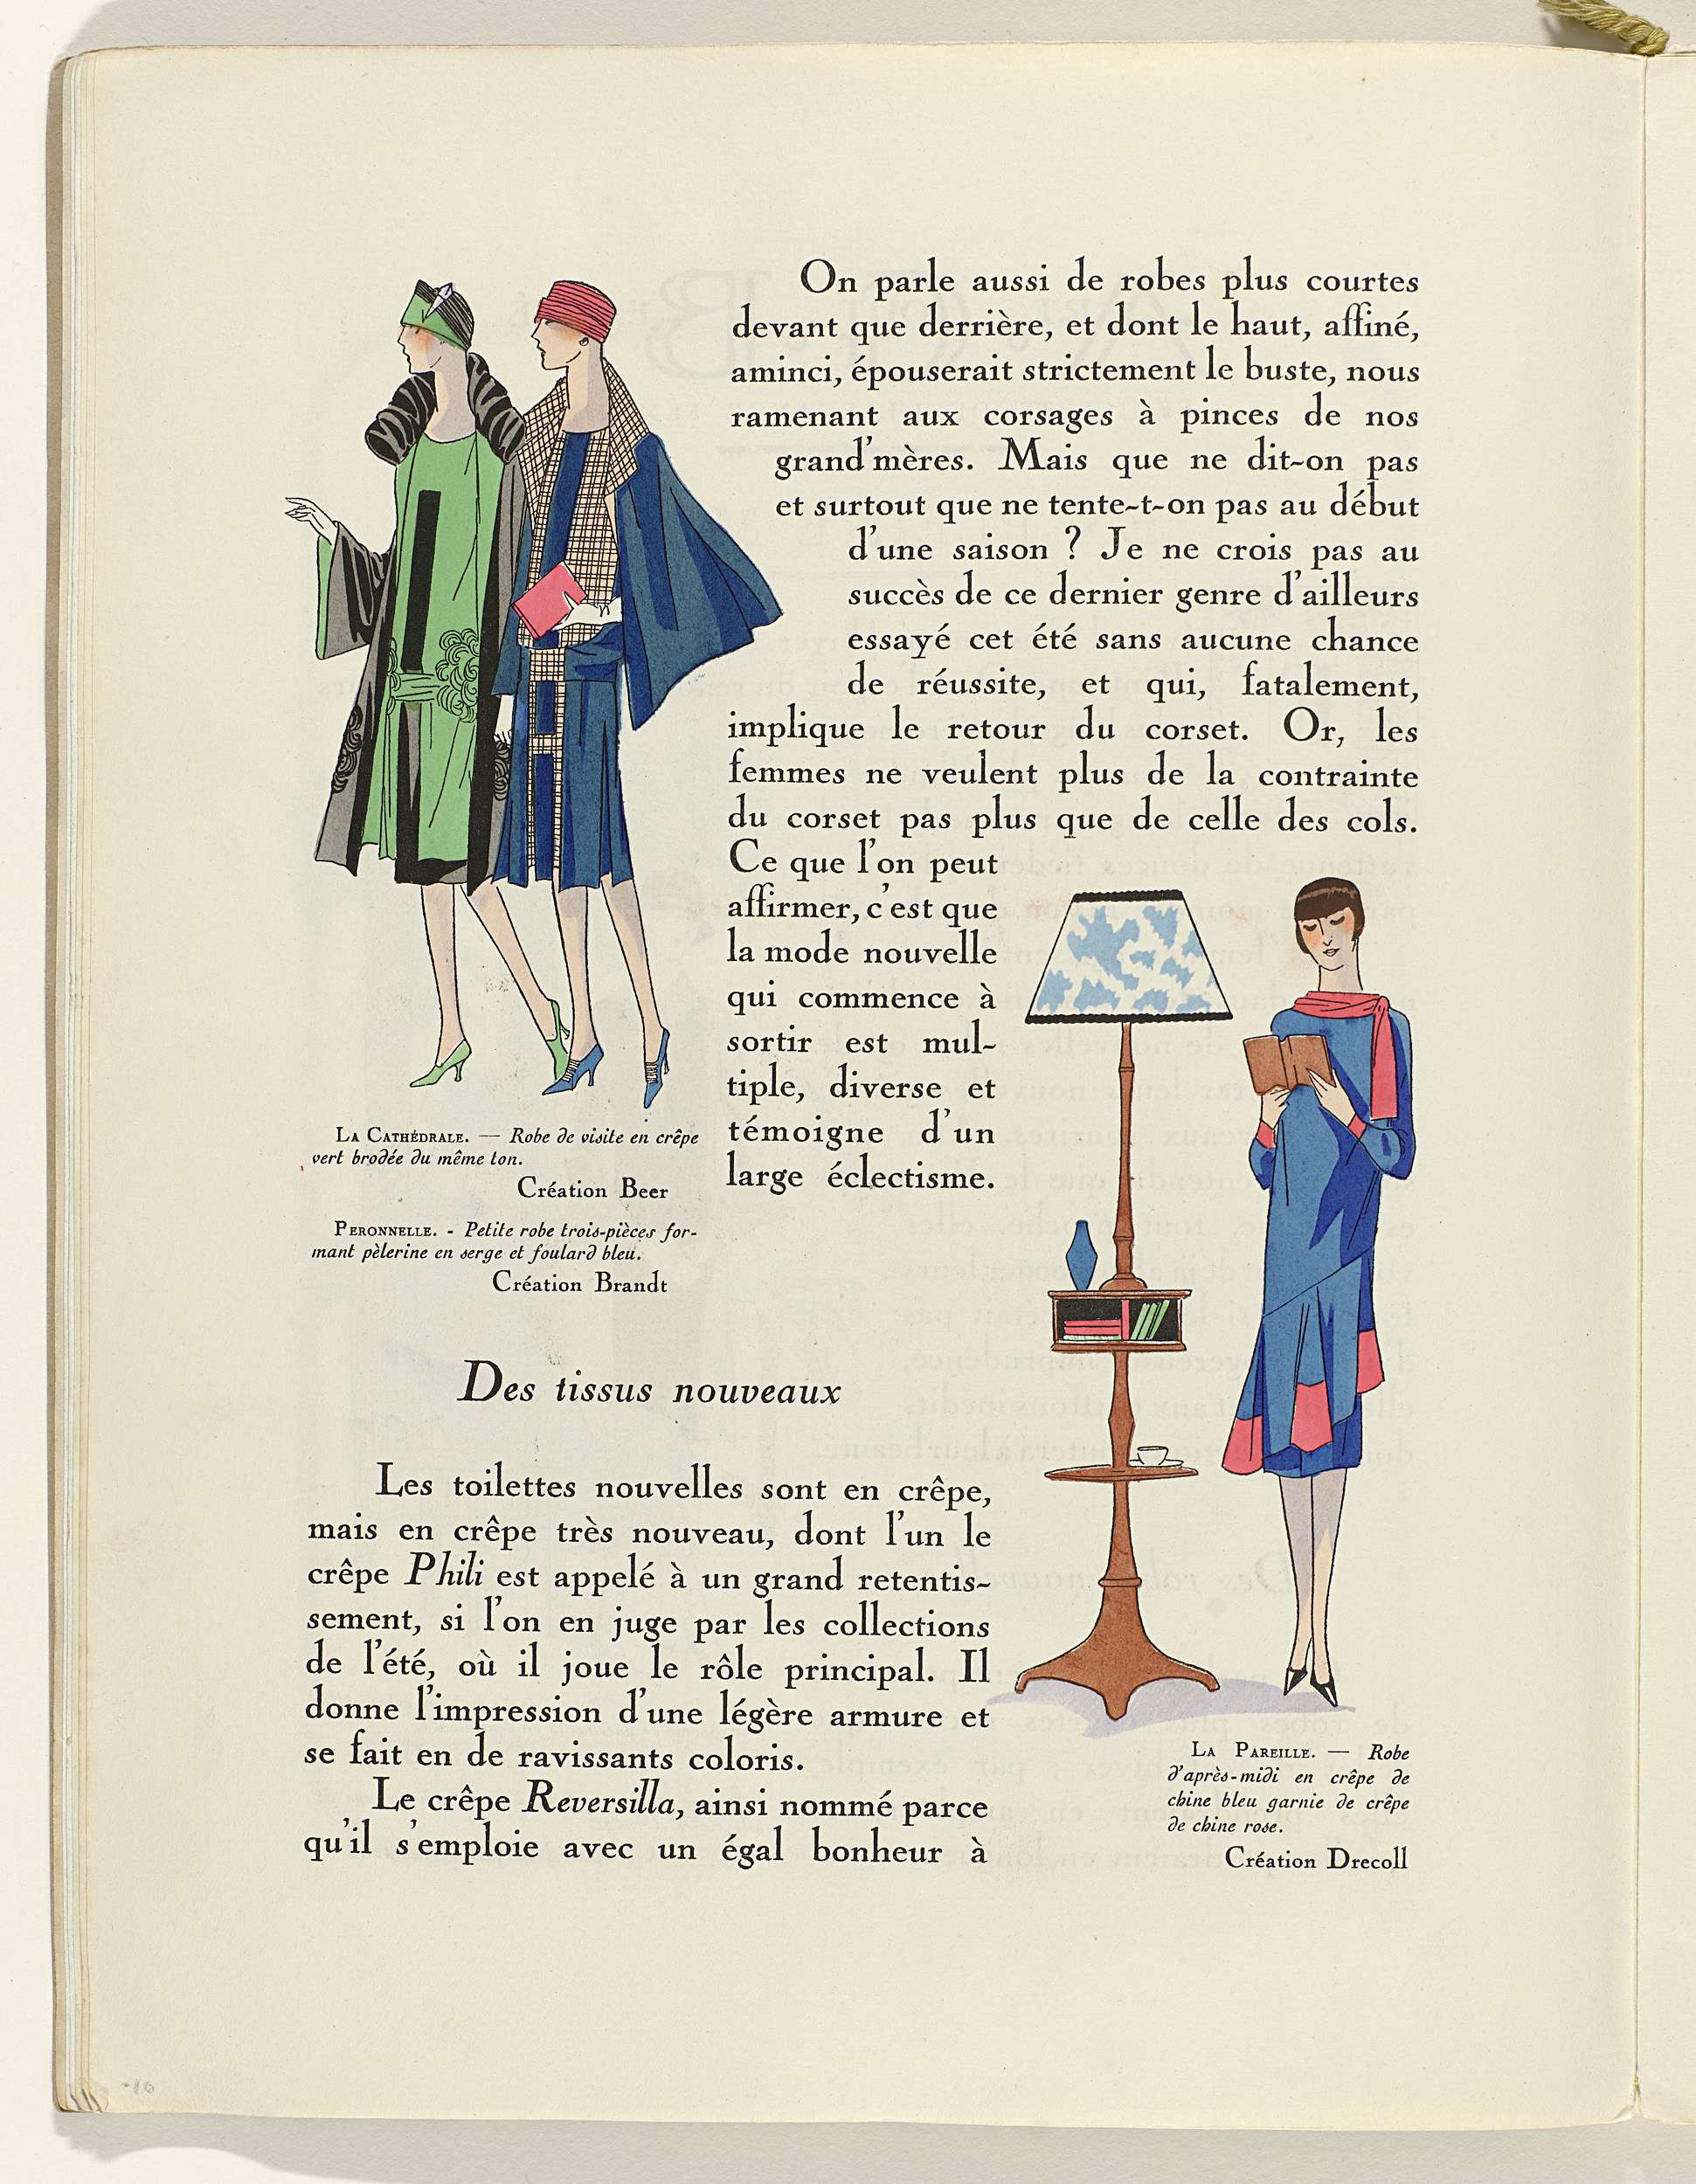 On parle aussi de robes plus courtes
devant que derrière, et dont le haut, affiné,
aminci, épouserait strictement le buste, nous
ramenant aux corsages à pinces de nos
grand'mères. Mais que ne dit-on pas
et surtout que ne tente-t-on pas au début
d'une saison ? Je ne crois pas au
succès de ce dernier genre d'ailleurs
essayé cet été sans aucune chance
de réussite, et qui, fatalement,
implique le retour du corset. Or, les
femmes ne veulent plus de la contrainte
du corset pas plus que de celle des cols.
Ce que l'on peut
affirmer, c'est que
la mode nouvelle
qui commence à
sortir est mul-
tiple, diverse et
témoigne d'un
large éclectisme.
LA CATHÉDRALE. — Robe de visite en crêpe
vert brodée du même ton.
Création Beer
PERONNELLE. - Petite robe trois-pièces for-
mant pèlerine en serge et foulard bleu.
Création Brandt
Des tissus nouveaux
Les toilettes nouvelles sont en crêpe,
mais en crêpe très nouveau, dont l'un le
crêpe Phili est appelé à un grand retentis-
sement, si l'on en juge par les collections
de l'été, où il joue le rôle principal. Il
donne l'impression d'une légère armure et
se fait en de ravissants coloris.
Le crêpe Reversilla, ainsi nommé parce
qu'il s'emploie avec un égal bonheur à
LA PAREILLE. — Robe
d'après-midi en crêpe de
chine bleu garnie de crêpe
de chine rose.
Création Drecoll